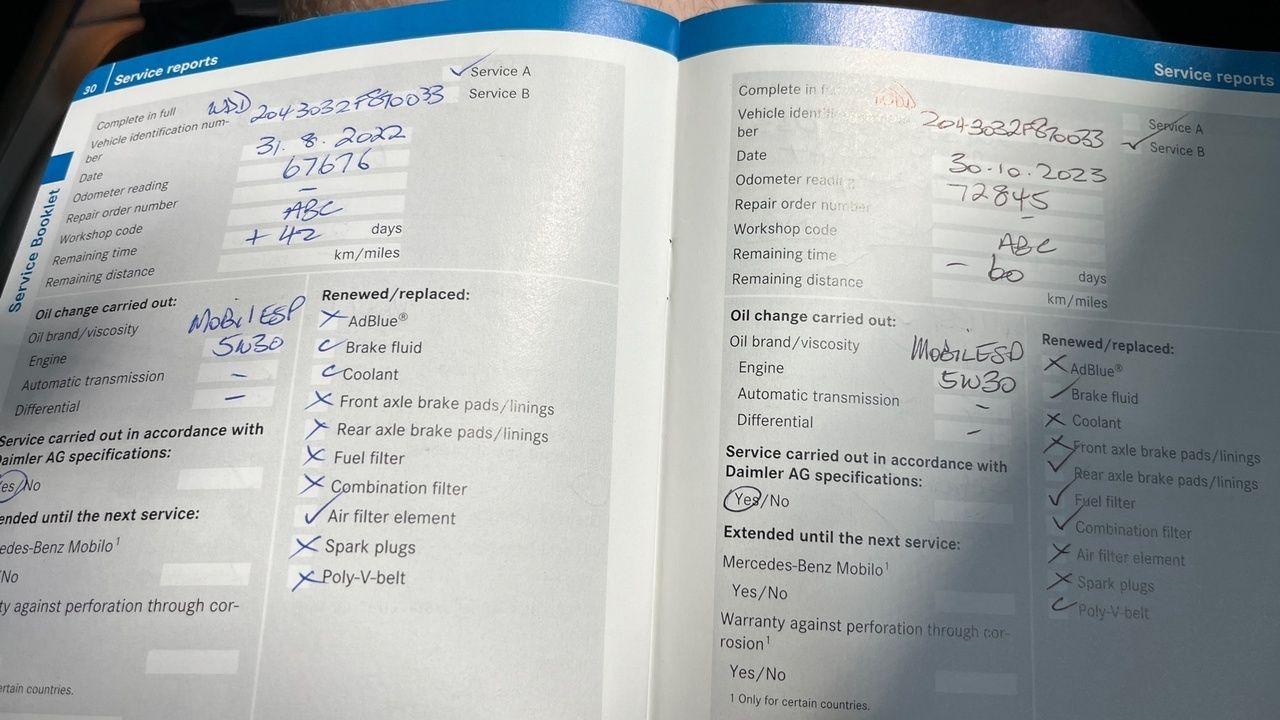 30 Service reports
Service Booklet
Complete in full
Service A
Service B
Vehicle identification num-
ber
WDD 2043032F870033
Date
31. 8. 2022
Odometer reading
67676
Repair order number
–
Workshop code
ABC
Remaining time
+ 42 days
Remaining distance
km/miles
Oil change carried out:
Oil brand/viscosity
MOBIL ESP
Engine
5W30
Automatic transmission
–
Differential
–
Service carried out in accordance with
Daimler AG specifications:
Yes/No
ended until the next service:
edes-Benz Mobilo¹
/No
ty against perforation through cor-
ertain countries.
Renewed/replaced:
AdBlue®
Brake fluid
Coolant
Front axle brake pads/linings
Rear axle brake pads/linings
Fuel filter
Combination filter
Air filter element
Spark plugs
Poly-V-belt
Service reports
Complete in
Service A
Service B
Vehicle identi
ber
WDD 2043032F870033
Date
30.10.2023
Odometer reading
72845
Repair order number
–
Workshop code
ABC
Remaining time
– 60 days
Remaining distance
km/miles
Oil change carried out:
Oil brand/viscosity
MOBIL ESP
Engine
5W30
Automatic transmission
–
Differential
–
Service carried out in accordance with
Daimler AG specifications:
Yes/No
Extended until the next service:
Mercedes-Benz Mobilo¹
Yes/No
Warranty against perforation through cor-
rosion¹
Yes/No
1 Only for certain countries.
Renewed/replaced:
AdBlue®
Brake fluid
Coolant
Front axle brake pads/linings
Rear axle brake pads/linings
Fuel filter
Combination filter
Air filter element
Spark plugs
Poly-V-belt